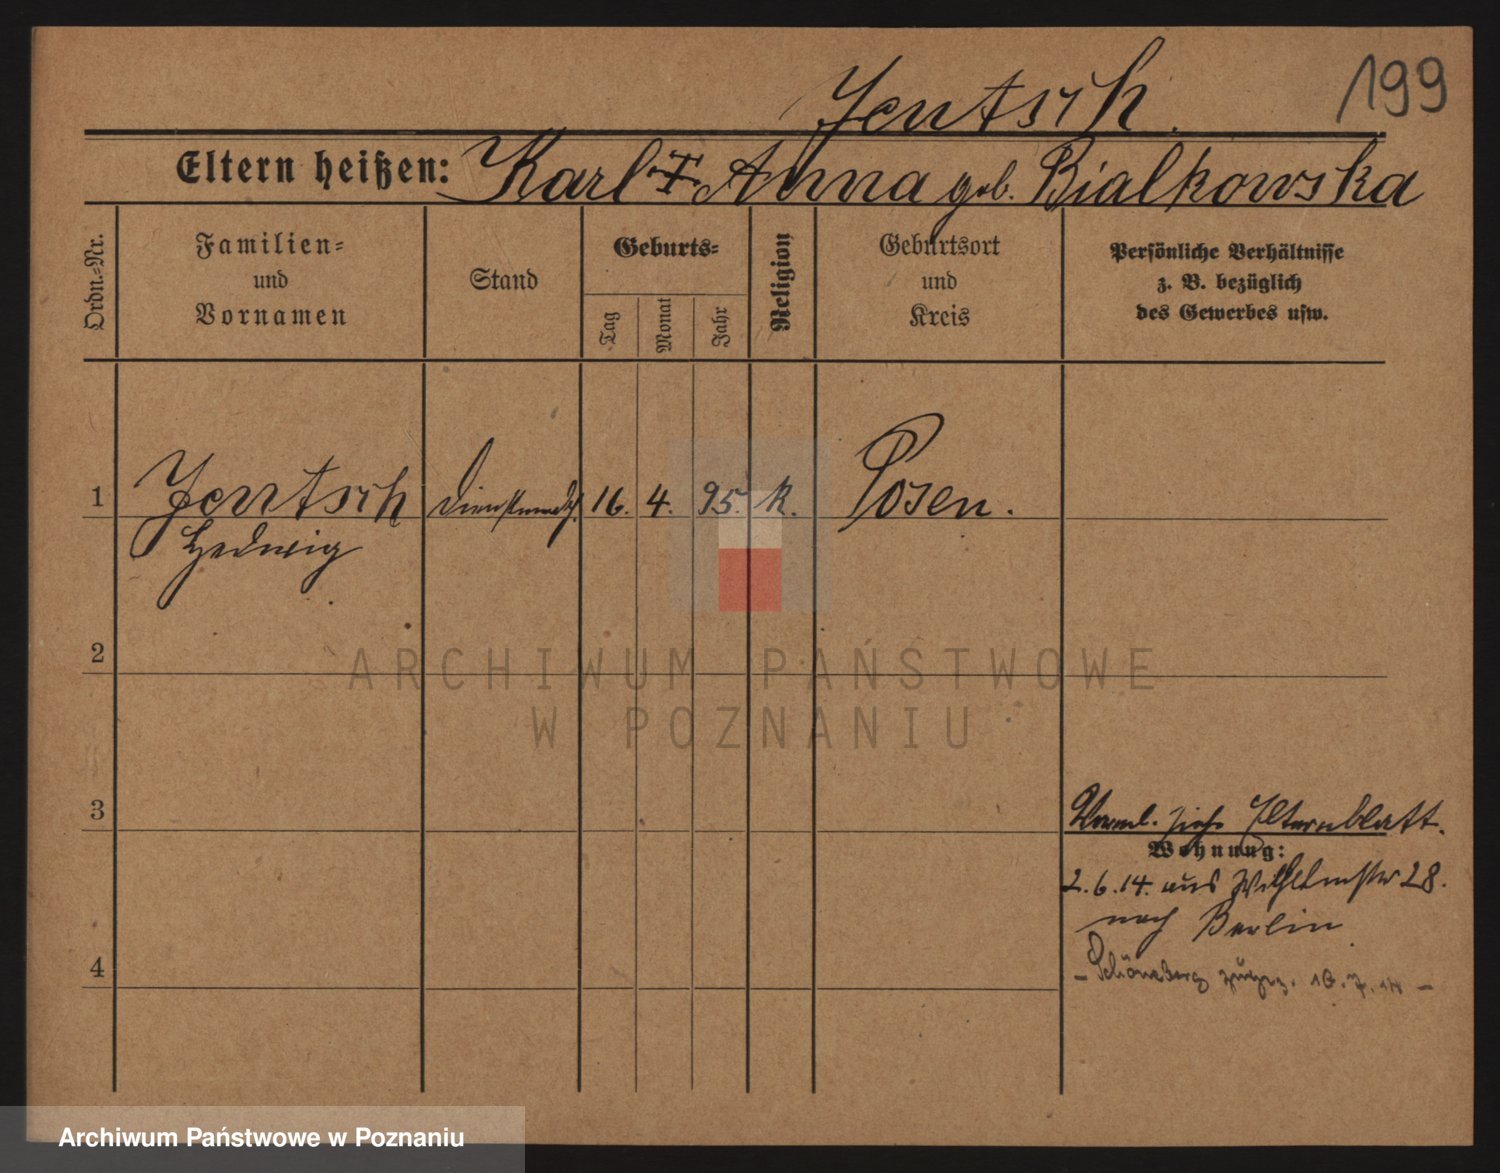 199
Jentsch.
Eltern heißen: Karl † Anna geb. Bialkowska
Ordn.-Nr.
Familien-
und
Vornamen
Stand
Geburts-
Tag
Monat
Jahr
Religion
Geburtsort
und
Kreis
Persönliche Verhältnisse
z. B. bezüglich
des Gewerbes usw.
1 Jentsch Dienstmdch. 16. 4. 95. k. Posen.
Hedwig
2
ARCHIWUM PAŃSTWOWE
W POZNANIU
3
siehe Elternblatt.
Wohnung:
2.6.14. aus Wilhelmstr 28.
nach Berlin
4
- Schöneberg 10.7.14 -
Archiwum Państwowe w Poznaniu